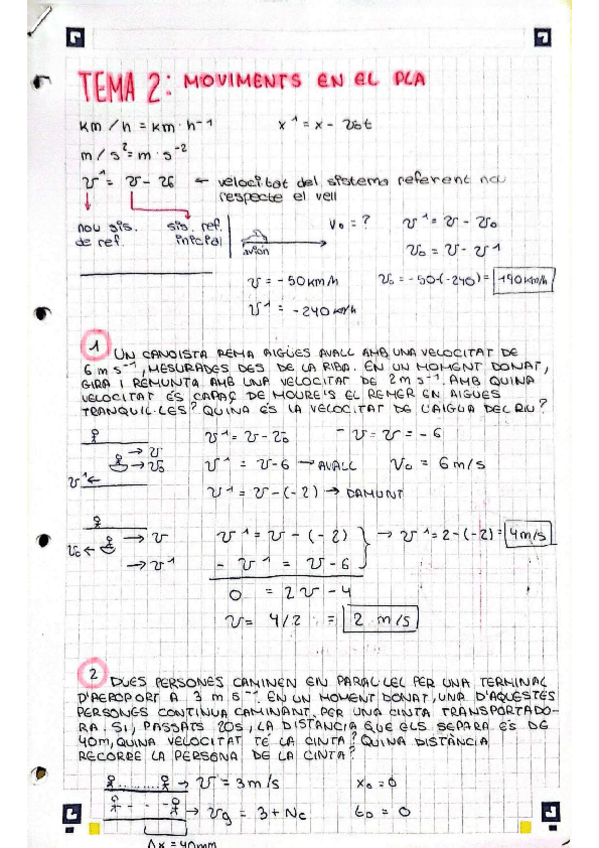 TEMA 2: MOVIMENTS EN EL PLA
km/h = km·h⁻¹ x¹ = x - v₀t
m/s² = m·s⁻²
v¹ = v - v₀ ← velocitat del sistema referent nou
respecte el vell
nou sis.
de ref.
sis. ref.
inicial
avión
v₀ = ? v¹ = v - v₀
v₀ = v - v¹
v = -50 km/h v₀ = -50-(-240) = 190 km/h
v¹ = -240 km/h
1 UN CANOISTA REMA AIGÜES AVALL AMB UNA VELOCITAT DE
6 m s⁻¹, MESURADES DES DE LA RIBA. EN UN MOMENT DONAT,
GIRA I REMUNTA AMB UNA VELOCITAT DE 2 m s⁻¹. AMB QUINA
VELOCITAT ÉS CAPAÇ DE MOURE'S EL REMER EN AIGÜES
TRANQUIL·LES? QUINA ÉS LA VELOCITAT DE L'AIGUA DEL RIU?
v¹ = v - v₀ - v = v = -6
→ v
→ v₀
v¹ ←
v¹ = v-6 → AVALL V₀ = 6 m/s
v¹ = v-(-2) → DAMUNT
v₀ ← → v
→ v¹
v¹ = v - (-2) → v¹ = 2-(-2) = 4 m/s
- v¹ = v - 6
0 = 2v - 4
v = 4/2 = 2 m/s
2 DUES PERSONES CAMINEN EN PARAL·LEL PER UNA TERMINAL
D'AEROPORT A 3 m s⁻¹. EN UN MOMENT DONAT, UNA D'AQUESTES
PERSONES CONTINUA CAMINANT PER UNA CINTA TRANSPORTADO-
RA. SI, PASSATS 20s, LA DISTÀNCIA QUE ELS SEPARA ÉS DE
40m, QUINA VELOCITAT TÉ LA CINTA? QUINA DISTÀNCIA
RECORRE LA PERSONA DE LA CINTA?
→ v = 3 m/s x₀ = 0
→ vg = 3 + Nc t₀ = 0
Δx = 40mm